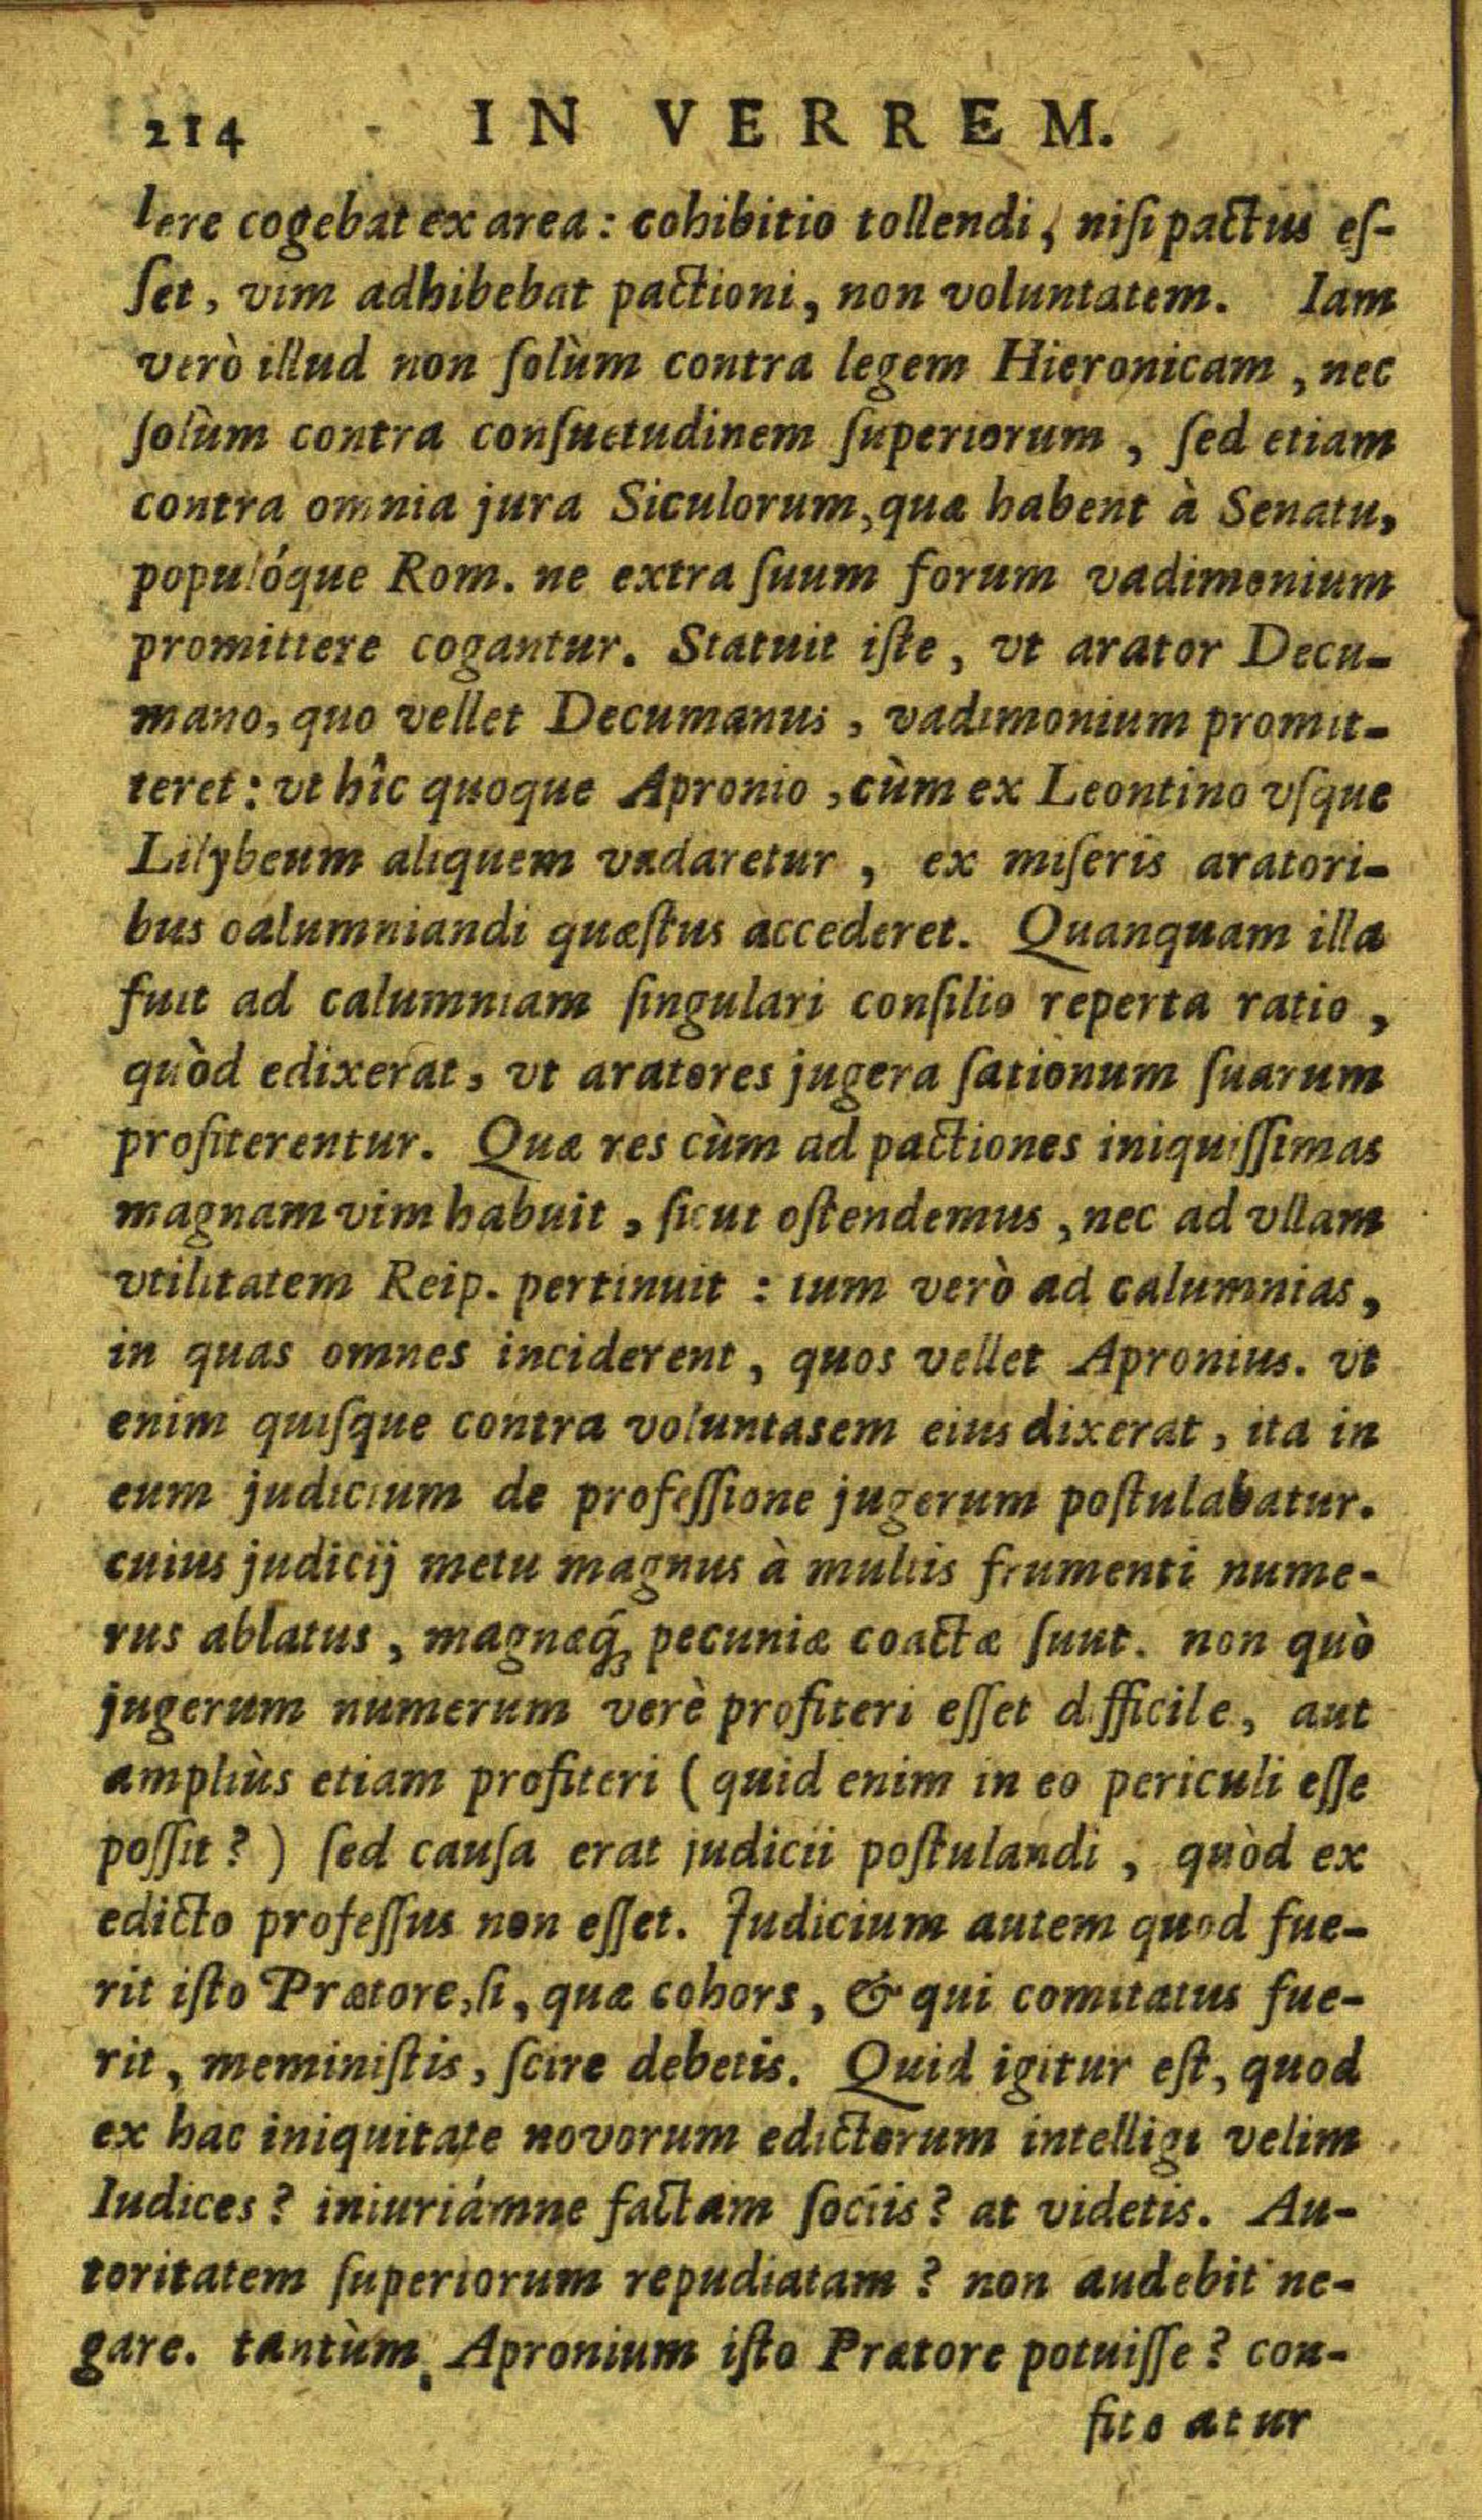 214 IN VERREM.
lere cogebat ex area: cohibitio tollendi, niſi pactus eſ-
ſet, vim adhibebat pactioni, non voluntatem. Iam
verò illud non ſolùm contra legem Hieronicam, nec
ſolùm contra conſuetudinem ſuperiorum, ſed etiam
contra omnia jura Siculorum, quæ habent à Senatu,
populóque Rom. ne extra ſuum forum vadimonium
promittere cogantur. Statuit iſte, vt arator Decu-
mano, quo vellet Decumanus, vadimonium promit-
teret: vt hîc quoque Apronio, cùm ex Leontino vſque
Lilybeum aliquem vadaretur, ex miſeris aratori-
bus calumniandi quæſtus accederet. Quanquam illa
fuit ad calumniam ſingulari conſilio reperta ratio,
quòd edixerat, vt aratores jugera ſationum ſuarum
profiterentur. Quæ res cùm ad pactiones iniquiſſimas
magnam vim habuit, ſicut oſtendemus, nec ad vllam
vtilitatem Reip. pertinuit: tum verò ad calumnias,
in quas omnes inciderent, quos vellet Apronius. vt
enim quiſque contra voluntasem eius dixerat, ita in
eum judicium de profeſſione jugerum poſtulabatur.
cuius judicij metu magnus à multis frumenti nume-
rus ablatus, magnæq́; pecuniæ coactæ ſunt. non quò
jugerum numerum verè profiteri eſſet difficile, aut
ampliùs etiam profiteri (quid enim in eo periculi eſſe
poſſit?) ſed cauſa erat judicii poſtulandi, quòd ex
edicto profeſſus non eſſet. Judicium autem quod fue-
rit iſto Prætore, ſi, quæ cohors, & qui comitatus fue-
rit, meminiſtis, ſcire debetis. Quid igitur eſt, quod
ex hac iniquitate novorum edictorum intelligi velim
Iudices? iniuriámne factam ſociis? at videtis. Au-
toritatem ſuperiorum repudiatam? non audebit ne-
gare. tantùm, Apronium iſto Prætore potuiſſe? con-
fite atur